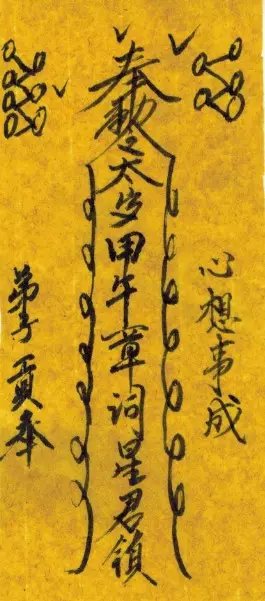 心想事成
奉勅令太岁甲午章詞星君領
弟子貢奉